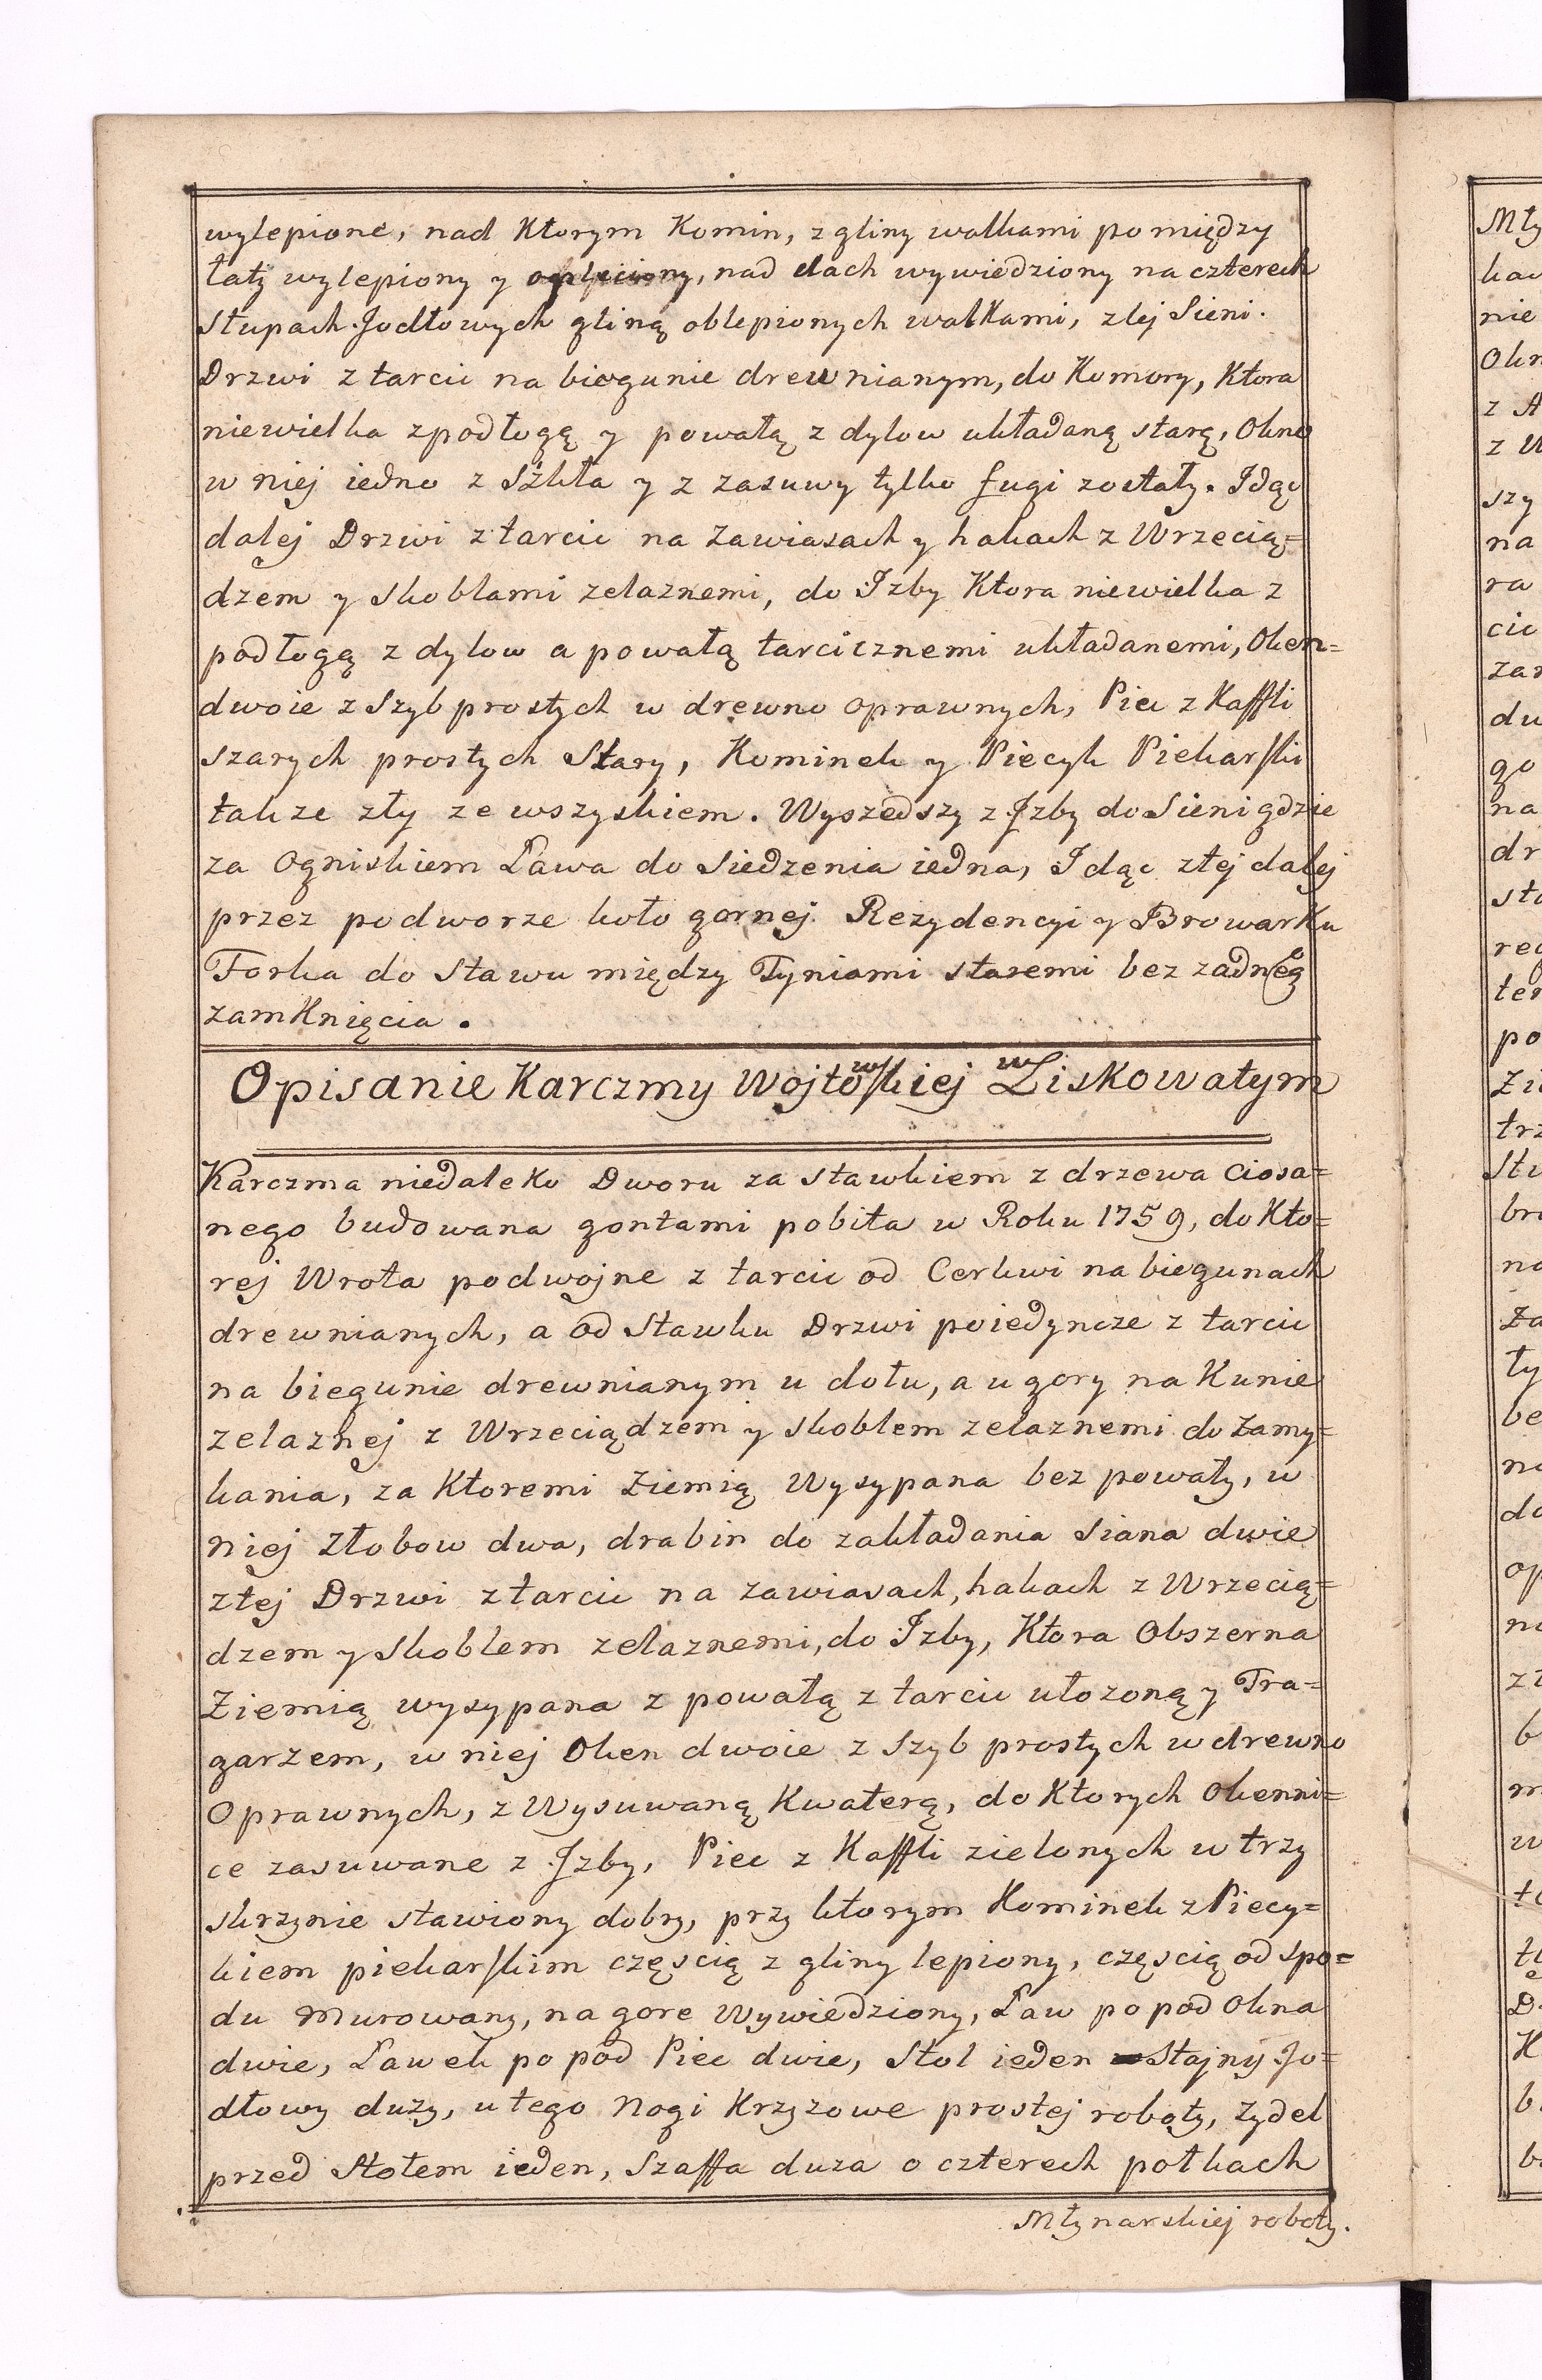 wylepione, nad Ktorym Komin, z gliny walkami pomiędzy
łaty wylepiony y nad dach wywiedziony na czterech
słupach Jodłowych gliną oblepionych walkami, z tej Sieni.
Drzwi z tarcic na biegunie drewnianym, do Komory, Ktora
niewielka z podłogą y powałą z dylow układaną starą, Okno
w niej iedno z Szkła y z zasuwy tylko fugi zostały. Idąc
dalej Drzwi z tarcic na Zawiasach y hakach z Wrzecią=
dzem y skoblami zelaznemi, do Izby Ktora niewielka z
podłogą z dylow a powałą tarcicznemi układanemi, Oken=
dwoie z Szyb prostych w drewno oprawnych, Piec z Kaffli
szarych prostych Stary, Kominek y Piecyk Piekarski
takze zły ze wszyskiem. Wyszedszy z Izby do Sieni gdzie
za Ogniskiem Ława do Siedzenia iedna, Idąc z tej dalej
przez podworze koło gornej Rezydencyi y Browarku
Forka do stawu między Tyniami staremi bez zadneg
zamknięcia.
Opisanie Karczmy Wojtowskiej w Liskowatym
Karczma niedaleko Dworu za stawkiem z drzewa Ciosa=
nego budowana gontami pobita w Roku 1759, do Kto=
rej Wrota podwojne z tarcic od Cerkwi na biegunach
drewnianych, a od Stawku Drzwi poiedyncze z tarcic
na biegunie drewnianym u dołu, a u gory na Kunie
zelaznej z Wrzeciądzem y skoblem zelaznemi do Zamy=
kania, za Ktoremi Ziemią Wysypana bez powały, w
niej Złobow dwa, drabin do zakładania Siana dwie
z tej Drzwi z tarcic na zawiasach, hakach z Wrzecią=
dzem y skoblem zelaznemi, do Izby, Ktora Obszerna
Ziemią wysypana z powałą z tarcic ułozoną y Tra=
garzem, w niej Oken dwoie z Szyb prostych w drewno
Oprawnych, z Wysuwaną Kwaterą, do Ktorych Okenni=
ce zasuwane z Izby, Piec z Kaffli zielonych w trzy
skrzynie stawiony dobry, przy ktorym Kominek z Piecy=
kiem piekarskim częscią z gliny lepiony, częscią od spo=
du Murowany, na gore Wywiedziony, Ław popod Okna
dwie, Ławek popod Piec dwie, Stoł ieden Stajny Jo=
dłowy duży, u tego Nogi Krzyzowe prostej roboty, Zydel
przed Stołem ieden, Szaffa duza o czterech połkach
Młynarskiej roboty.